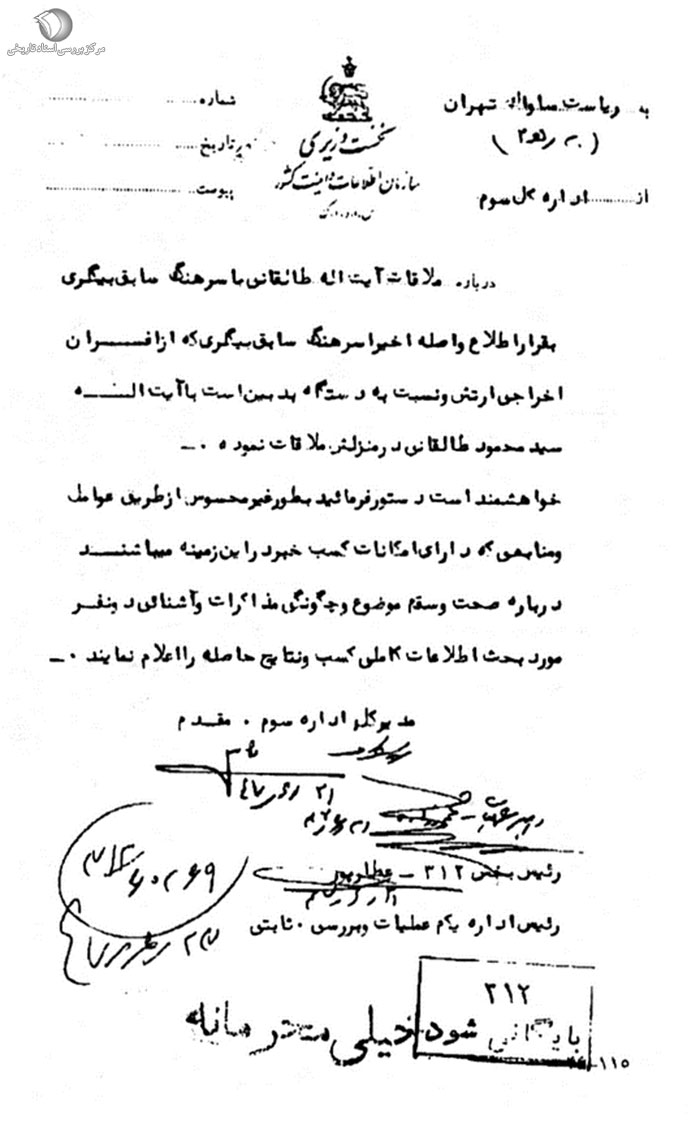 مرکز بررسی اسناد تاریخی
به ریاست ساواک تهران
( ۲۰ ه ۳ )
از اداره کل سوم
نخست وزیری
سازمان اطلاعات و امنیت کشور
س.ا.و.ا.ک
شماره
تاریخ
پیوست
درباره ملاقات آیت اله طالقانی با سرهنگ سابق بیگلری
بقرار اطلاع واصله اخیرا سرهنگ سابق بیگلری که از افسران
اخراجی ارتش و نسبت به دستگاه بدبین است با آیت الله
سید محمود طالقانی در منزلش ملاقات نموده ۰ـ
خواهشمند است دستور فرمائید بطور غیر محسوس از طریق عوامل
و منابعی که دارای امکانات کسب خبر در این زمینه میباشند
درباره صحت و سقم موضوع و چگونگی مذاکرات و آشنائی دو نفر
مورد بحث اطلاعات کاملی کسب و نتایج حاصله را اعلام نمایند ۰ـ
مدیر کل اداره سوم ۰ مقدم
رئیس بخش ۳۱۲ ـ عطارپور
رئیس اداره یکم عملیات و بررسی ۰ ثابتی
۳۱۲
بایگانی شود
خیلی محرمانه
۱۱۵